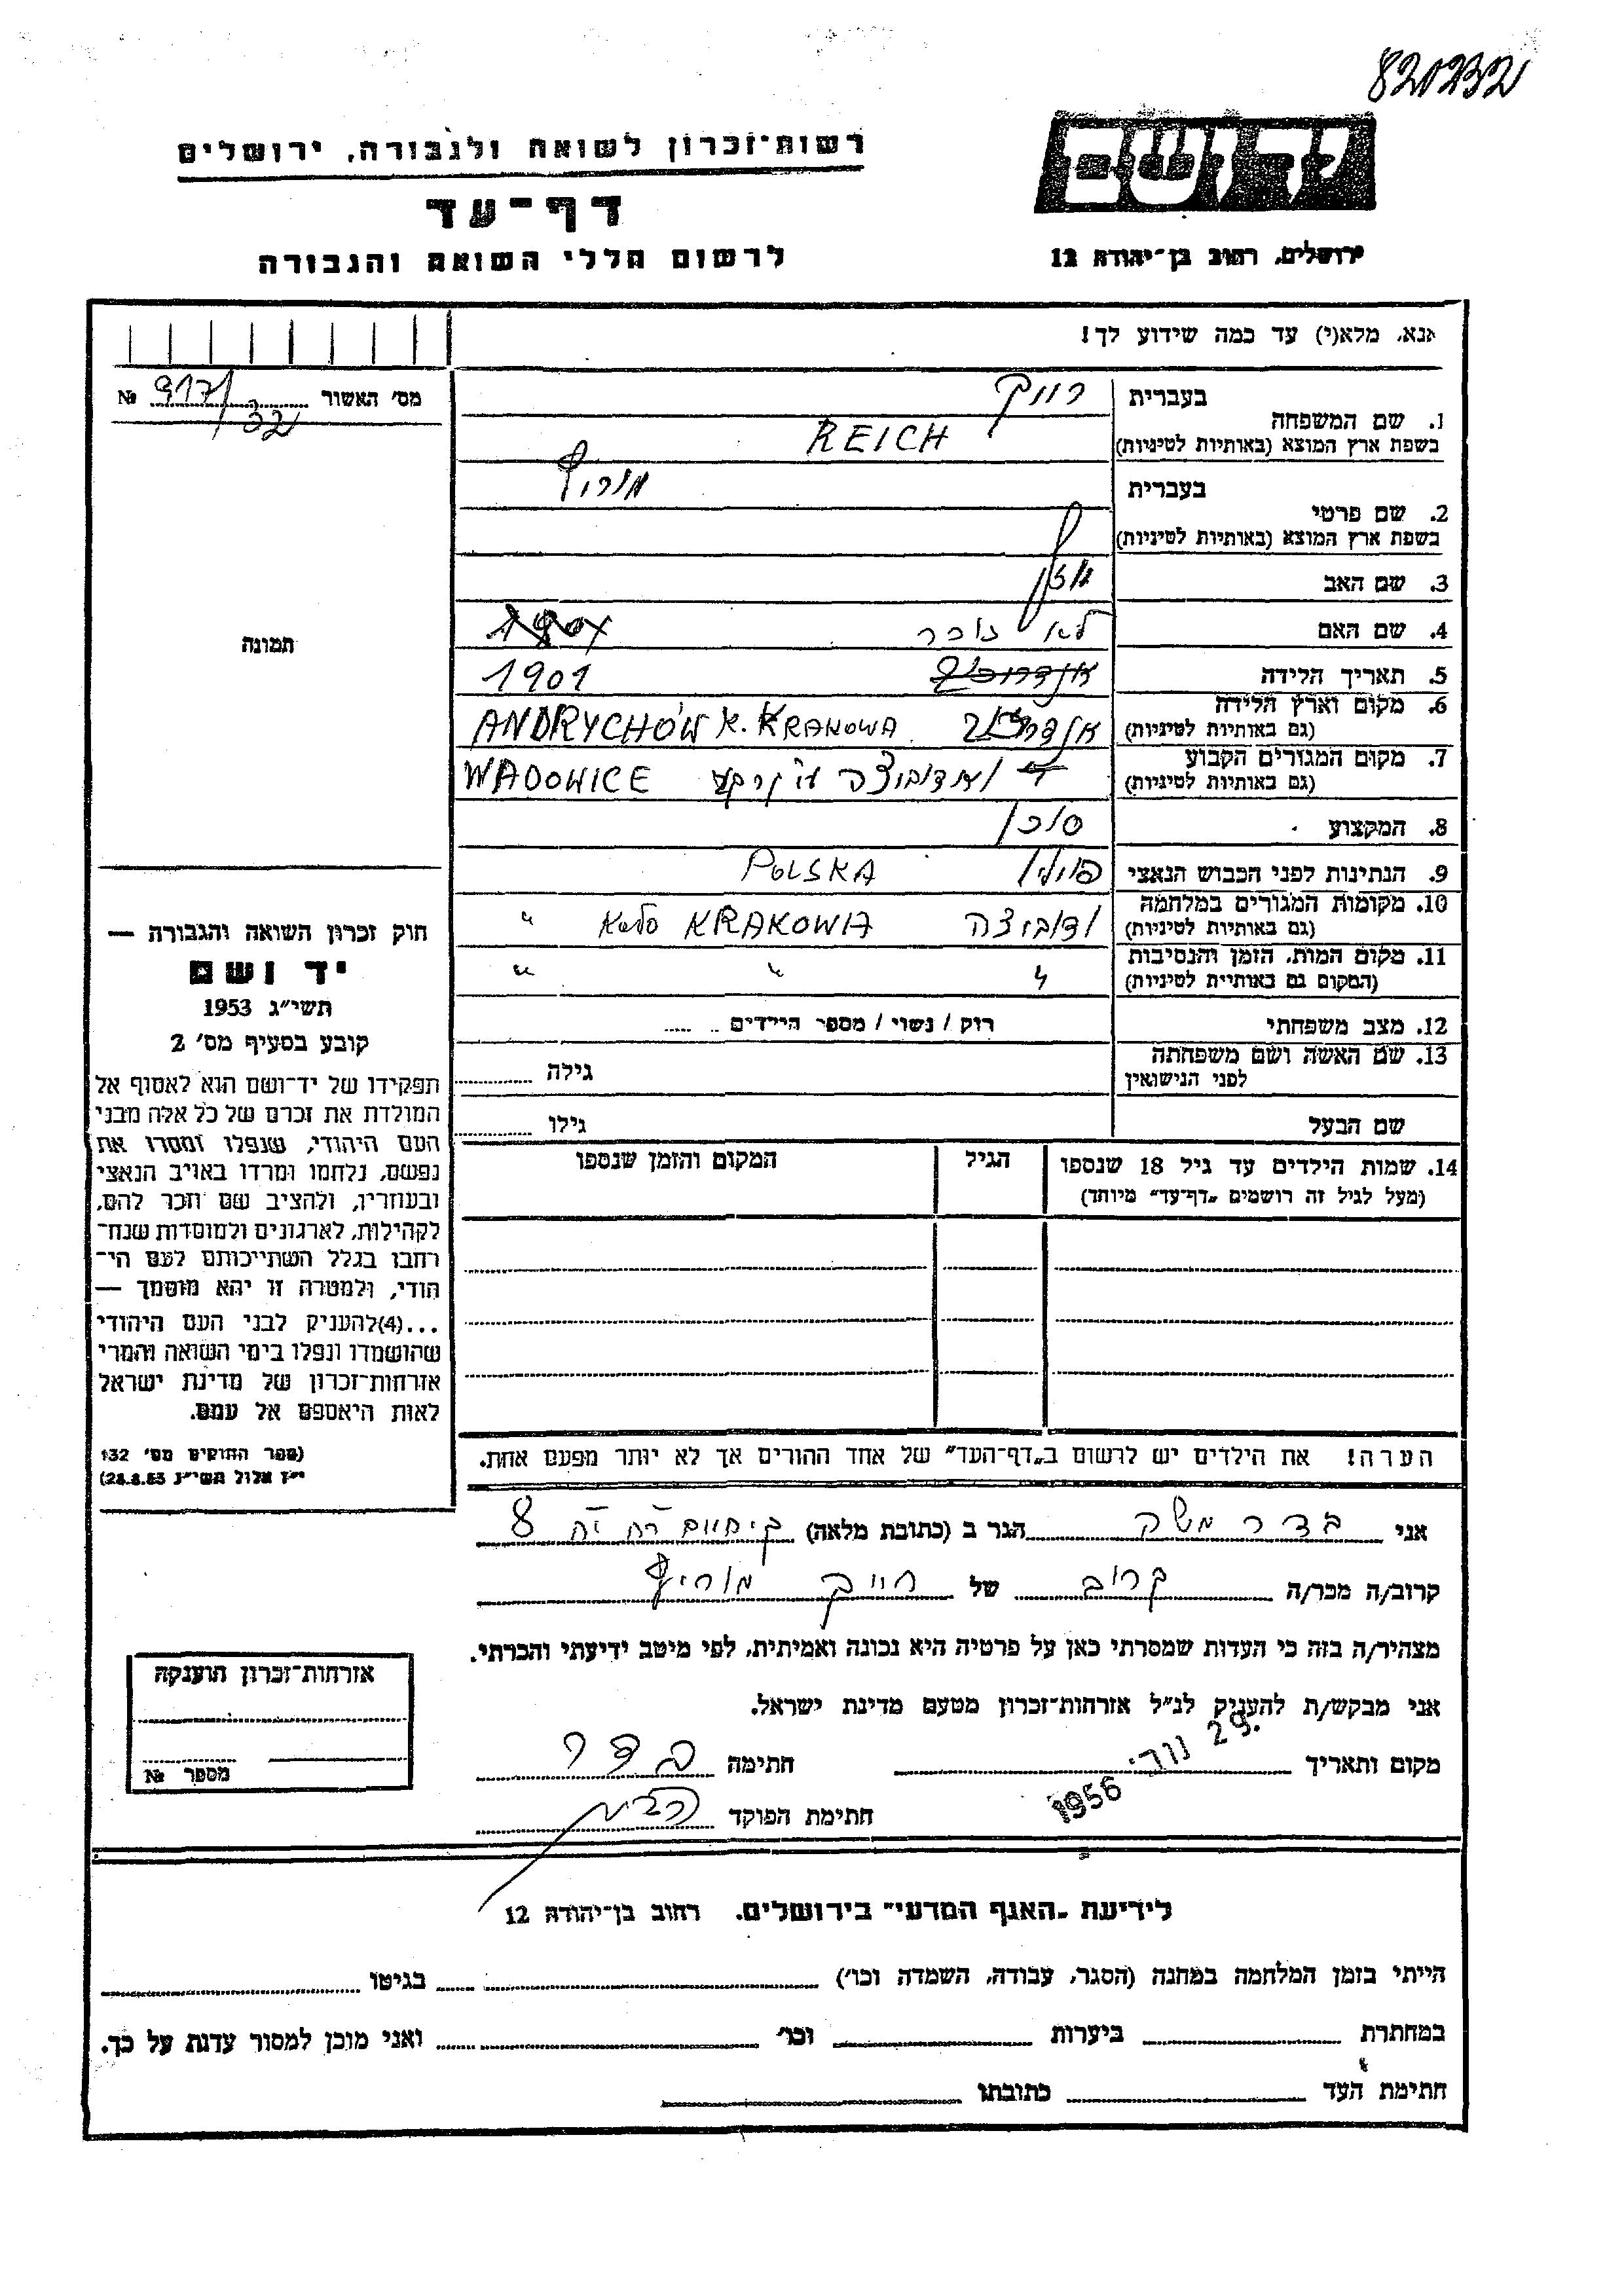 820232
רשות־זכרון לשואה ולגבורה, ירושלים
יד ושם
דף־עד
לרשום חללי השואה והגבורה
ירושלים, רחוב בן־יהודה 12
אנא, מלא(י) עד כמה שידוע לך!
מס׳ האשור № 9171/32
תמונה
1. שם המשפחה
בעברית רייך
בשפת ארץ המוצא (באותיות לטיניות) REICH
2. שם פרטי
בעברית
בשפת ארץ המוצא (באותיות לטיניות)
3. שם האב
4. שם האם לא זוכר
5. תאריך הלידה 1901
6. מקום וארץ הלידה
(גם באותיות לטיניות) ANDRYCHÓW K. KRAKOWA
7. מקום המגורים הקבוע
(גם באותיות לטיניות) ואדוביצה ע״י קרקא WADOWICE
8. המקצוע סוכן
9. הנתינות לפני הכבוש הנאצי פולין POLSKA
10. מקומות המגורים במלחמה
(גם באותיות לטיניות) KRAKOWA "
11. מקום המות, הזמן והנסיבות
(המקום גם באותיית לטיניות) " " "
12. מצב משפחתי רוק / נשוי / מספר היידים
13. שם האשה ושם משפחתה
לפני הנישואין גילה
שם הבעל גילו
14. שמות הילדים עד גיל 18 שנספו
(מעל לגיל זה רושמים „דף־עד״ מיוחד)
הגיל
המקום והזמן שנספו
הערה! את הילדים יש לרשום ב„דף־העד״ של אחד ההורים אך לא יותר מפעם אחת.
חוק זכרון השואה והגבורה —
יד ושם
תשי״ג 1953
קובע בסעיף מס׳ 2
תפקידו של יד־ושם הוא לאסוף אל
המולדת את זכרם של כל אלה מבני
העם היהודי, שנפלו ומסרו את
נפשם, נלחמו ומרדו באויב הנאצי
ובעוזריו, ולהציב שם וזכר להם,
לקהילות, לארגונים ולמוסדות שנח־
רחבו בגלל השתייכותם לעם הי־
הודי, ולמטרה זו יהא מוסמך —
...(4)להעניק לבני העם היהודי
שהושמדו ונפלו בימי השואה והמרי
אזרחות־זכרון של מדינת ישראל
לאות היאספם אל עמם.
(ספר החוקים מס׳ 132
י״ז אלול תשי״ג 28.8.53)
אני בדר משה הגר ב (כתובת מלאה) ק. חיים 8
קרוב/ה מכר/ה קרוב של רייך
מצהיר/ה בזה כי העדות שמסרתי כאן על פרטיה היא נכונה ואמיתית, לפי מיטב ידיעתי והכרתי.
אני מבקש/ת להעניק לנ״ל אזרחות־זכרון מטעם מדינת ישראל.
מקום ותאריך 29. נוב׳ 1956 חתימה בדר
חתימת הפוקד
אזרחות־זכרון הוענקה
מספר №
לידיעת „האגף המדעי״ בירושלים. רחוב בן־יהודה 12
הייתי בזמן המלחמה במחנה (הסגר, עבודה, השמדה וכו׳) בגיטו
במחתרת ביערות וכו׳ ואני מוכן למסור עדות על כך.
חתימת העד כתובתו